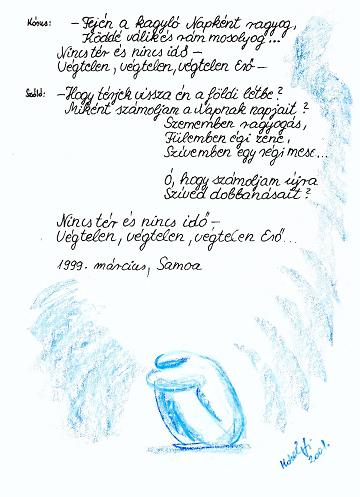 Kórus: – Fején a kagyló Napként ragyog,
Köddé válik és rám mosolyog...
Nincs tér és nincs idő –
Végtelen, végtelen, végtelen Erő –
Szóló: – Hogy térjek vissza én a földi létbe?
Miként számoljam a Napnak napjait?
Szememben ragyogás,
Fülemben égi zene,
Szívemben egy régi mese...
Ó, hogy számoljam újra
Szíved dobbanásait?
Nincs tér és nincs idő –
Végtelen, végtelen, végtelen Erő...
1999. március, Samoa
2001.